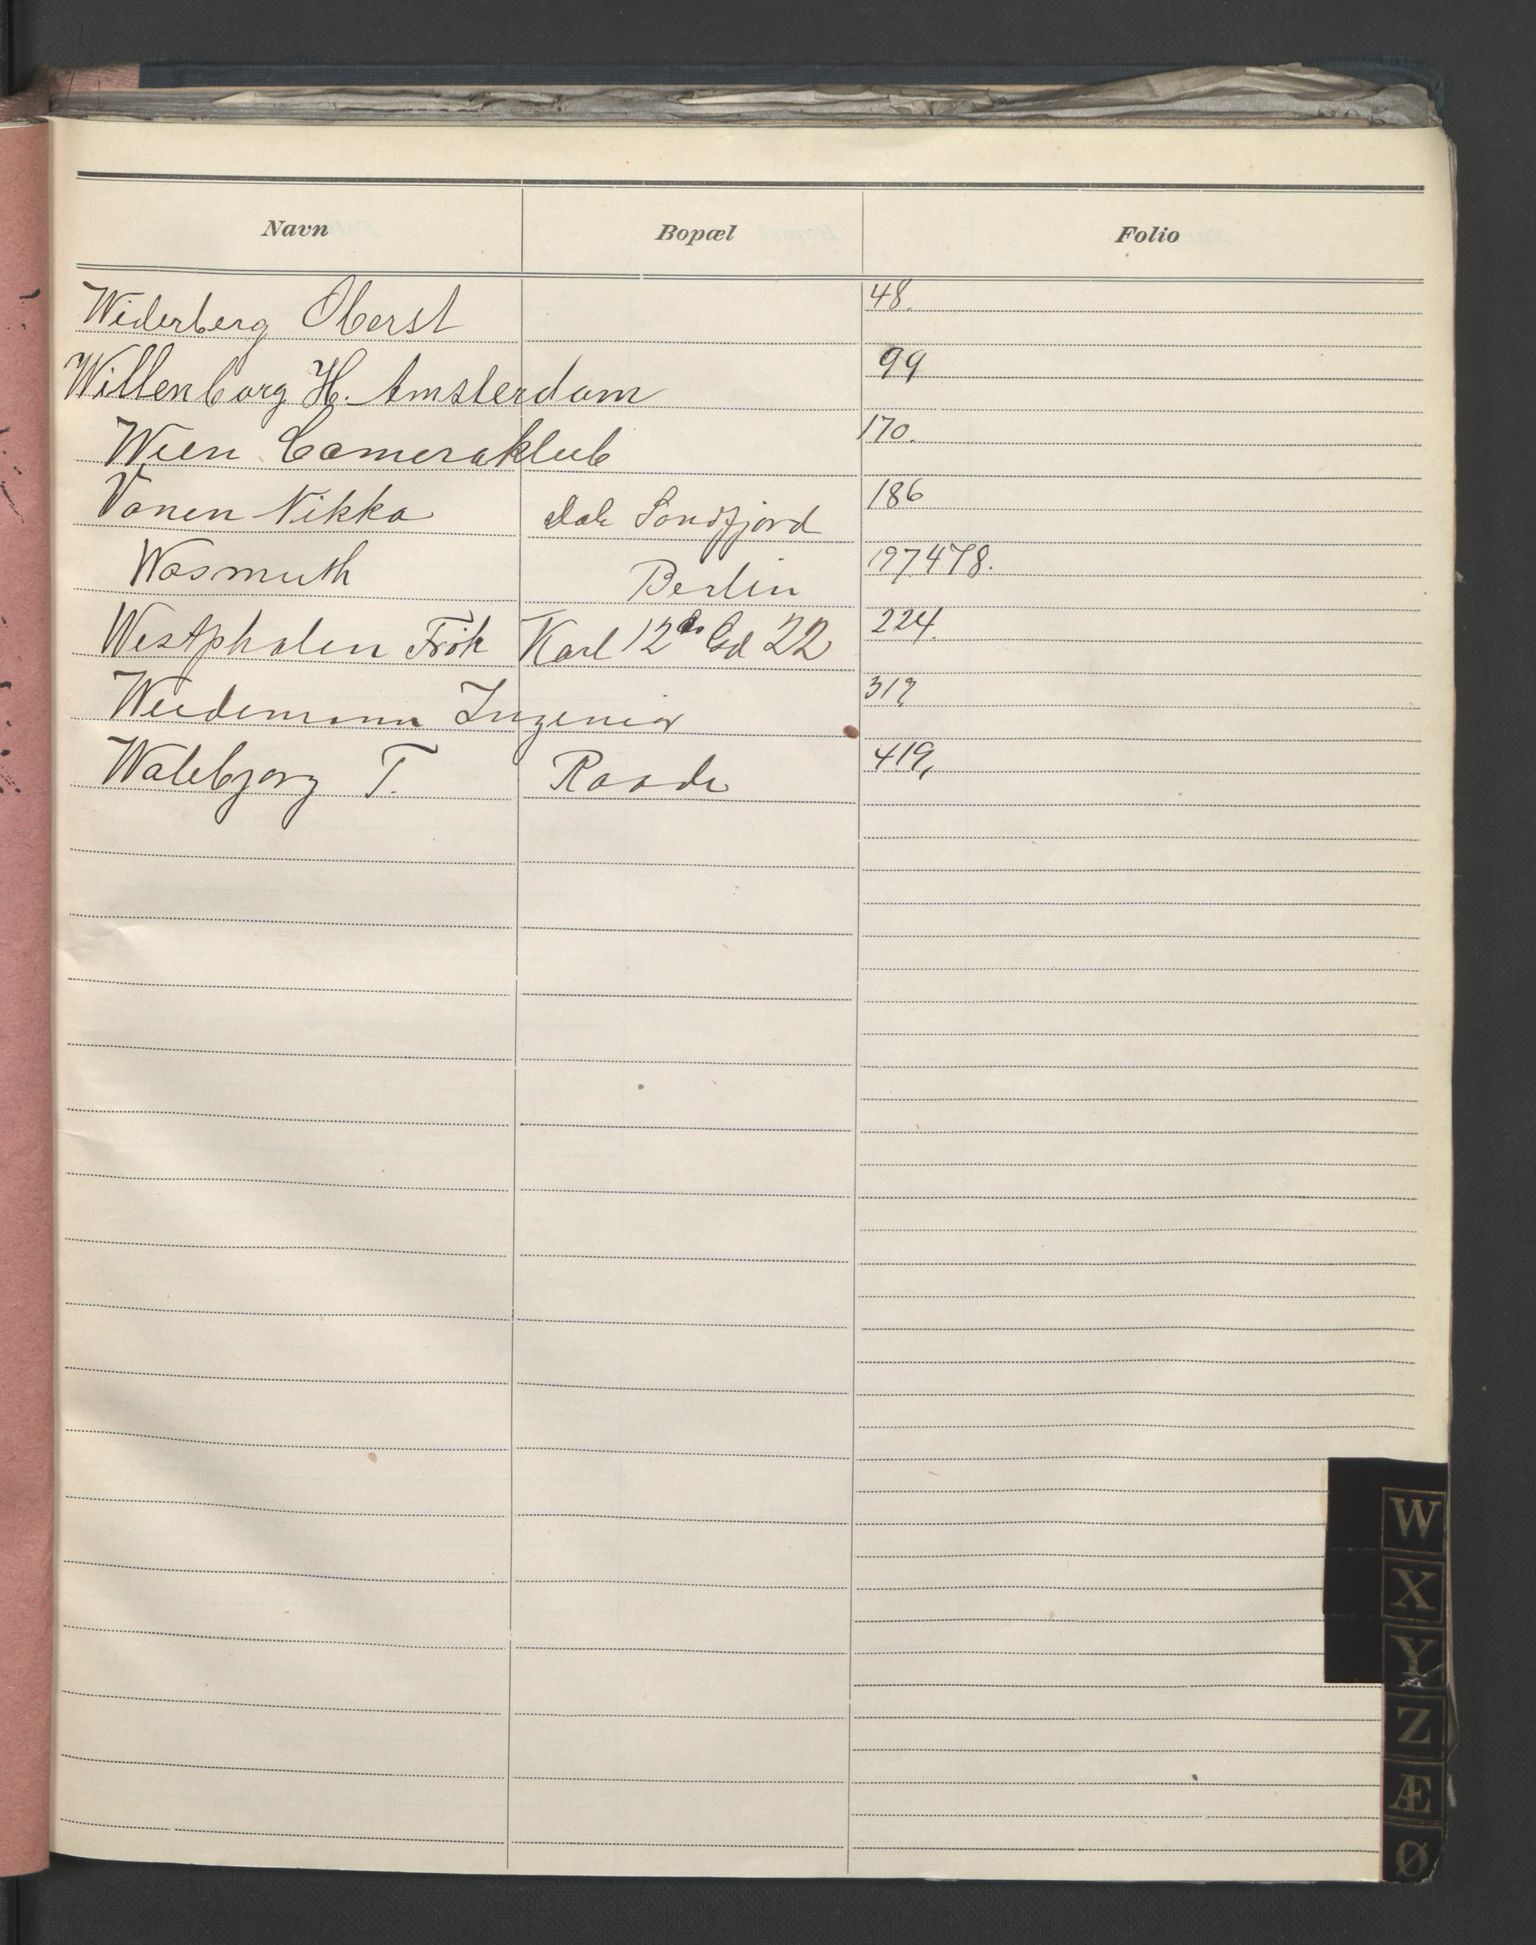 Navn Bopæl Folio
Widerberg Oberst 48.
Willenborg H. Amsterdam 99
Wien Cameraklub 170.
Vonen Nikka Dale Sondfjord 186
Wasmuth Berlin 197 478.
Westphalen Frøk Karl 12 Gd 22 224.
Weidemann Ingeniør 317
Walebjorg T. Raade 419,
W
X
Y
Z
Æ
Ø